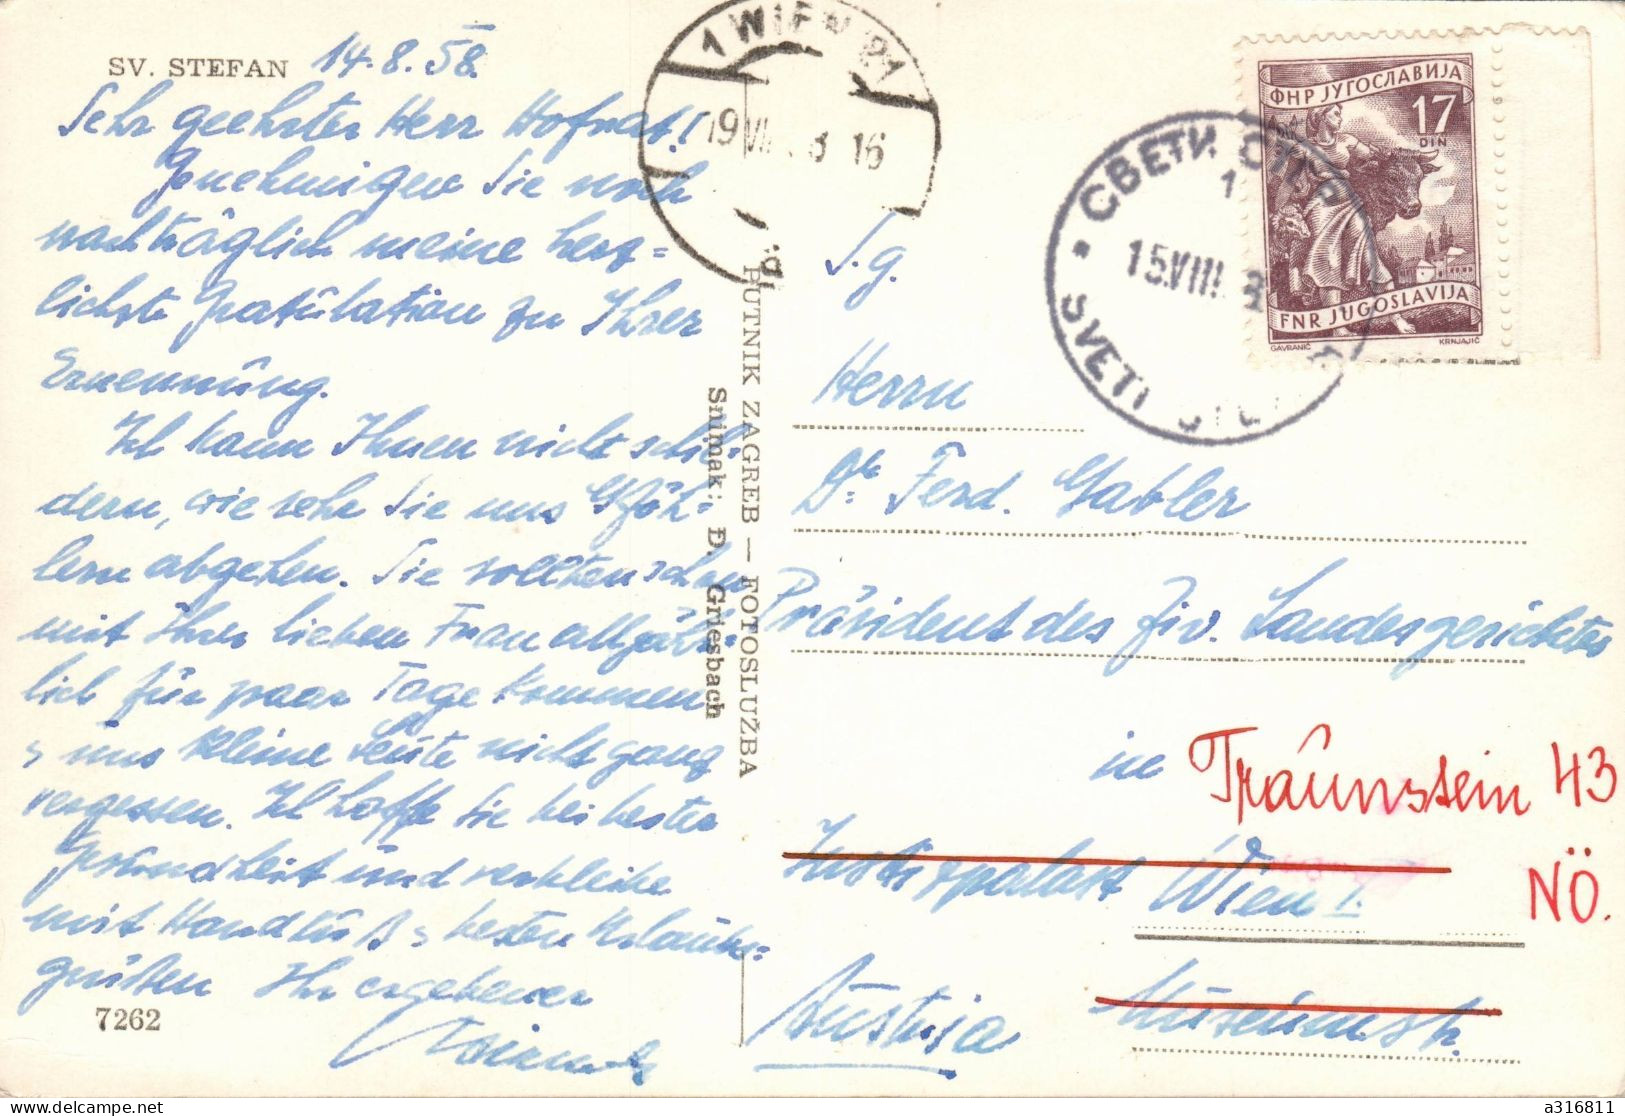 SV. STEFAN 14.8.58.
Sehr geehrter Herr Hofrat!
Genehmigen Sie noch
nachträglich meine herz=
lichste Gratulation zu Ihrer
Ernennung.
Ich kann Ihnen nicht schil-
dern, wie sehr Sie uns Gföh-
lern abgehen. Sie sollten schon
mit Ihrer lieben Frau alljähr-
lich für paar Tage kommen
uns kleine Leute nicht ganz
vergessen. Ich hoffe Sie bei bester
Gesundheit und verbleibe
mit Handkuß besten Urlaubs=
grüßen Ihr ergebener
7262
PUTNIK ZAGREB — FOTOSLUŽBA
Snimak: D. Griesbach
1 WIEN
19 VIII 16
СВЕТИ
15.VIII
SVETI
ФНР ЈУГОСЛАВИЈА
17
DIN
FNR JUGOSLAVIJA
GAVRANIĆ KRNJAJIĆ
S.g.
Herrn
Dr. Ferd. Gabler
Präsident des Ziv. Landesgerichtes
in Traunstein 43
Justizpalast Wien I.
NÖ.
Austria Museumstr.
a316811